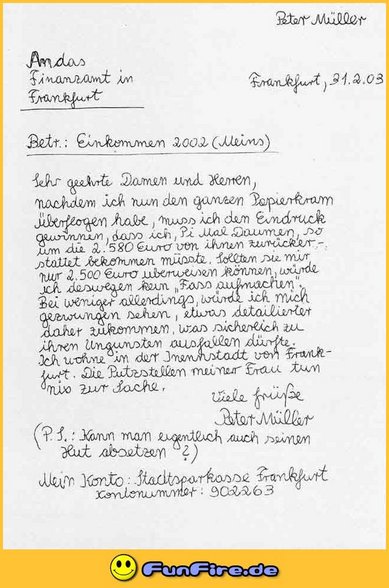 Peter Müller
Andas
Finanzamt in
Frankfurt
Frankfurt, 31.2.03
Betr.: Einkommen 2002 (Meins)
Sehr geehrte Damen und Herren,
nachdem ich nun den ganzen Papierkram
überflogen habe, muss ich den Eindruck
gewinnen, dass ich, Pi Mal Daumen, so
um die 2.580 Euro von ihnen zurücker-
stattet bekommen müsste. Sollten sie mir
nur 2.500 Euro überweisen können, würde
ich deswegen kein "Fass aufmachen".
Bei weniger allerdings, würde ich mich
gezwungen sehen, etwas detailierter
daher zukommen, was sicherlich zu
ihren Ungunsten ausfallen dürfte.
Ich wohne in der Inennstadt von Frank-
furt. Die Putzstellen meiner Frau tun
nix zur Sache.
Viele früße
Peter Müller
(P.S.: Kann man eigentlich auch seinen
Hut absetzen ?)
Mein Konto: Stadtsparkasse Frankfurt
Kontonummer: 902263
FunFire.de